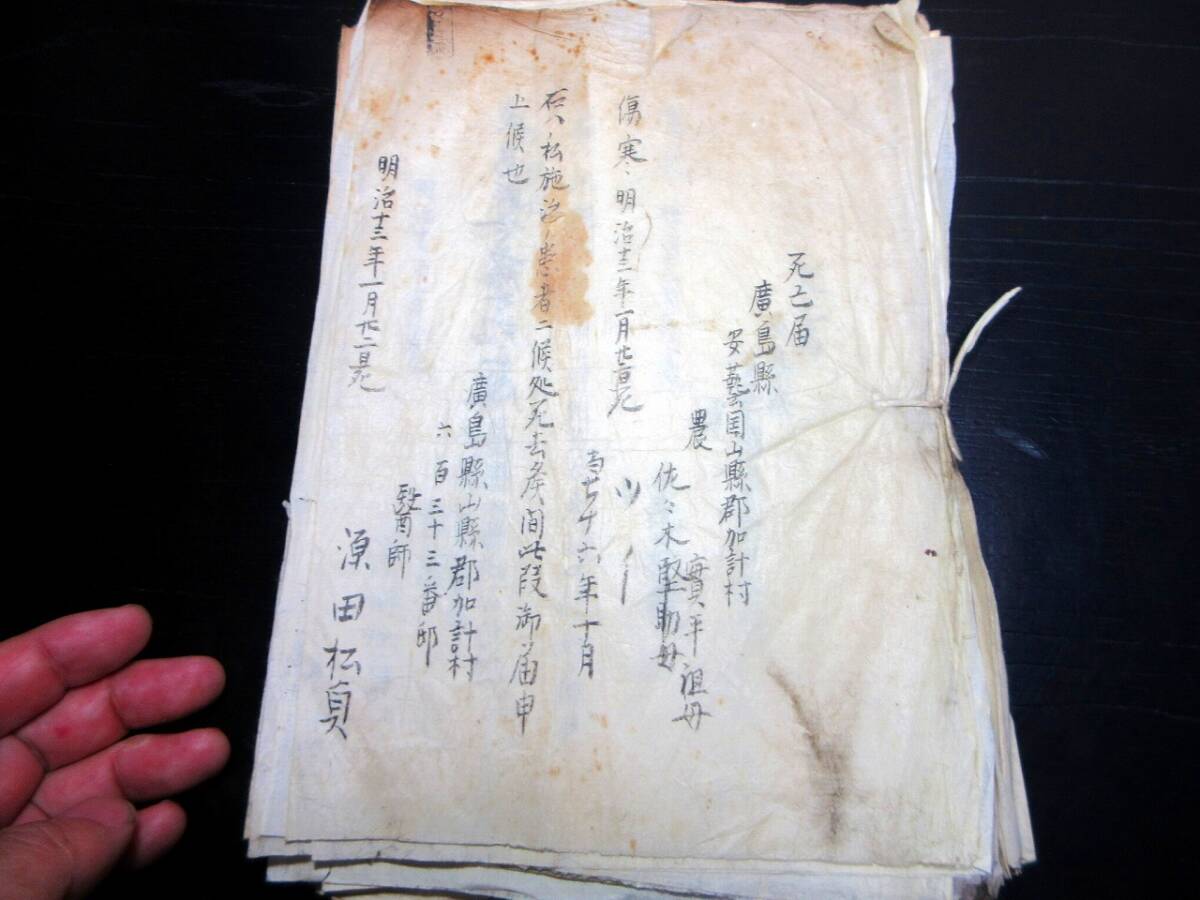 死亡届
廣島縣
安藝国山縣郡加計村
農
實平祖母
佐々木堅助母
ツ
傷寒明治十三年一月廿二日死
当七十六年十月
右ハ私施治ノ患者ニ候処死去候間此段御届申
上候也
廣島縣山縣郡加計村
六百三十三番邸
醫師
明治十三年一月廿二日
源田松貞